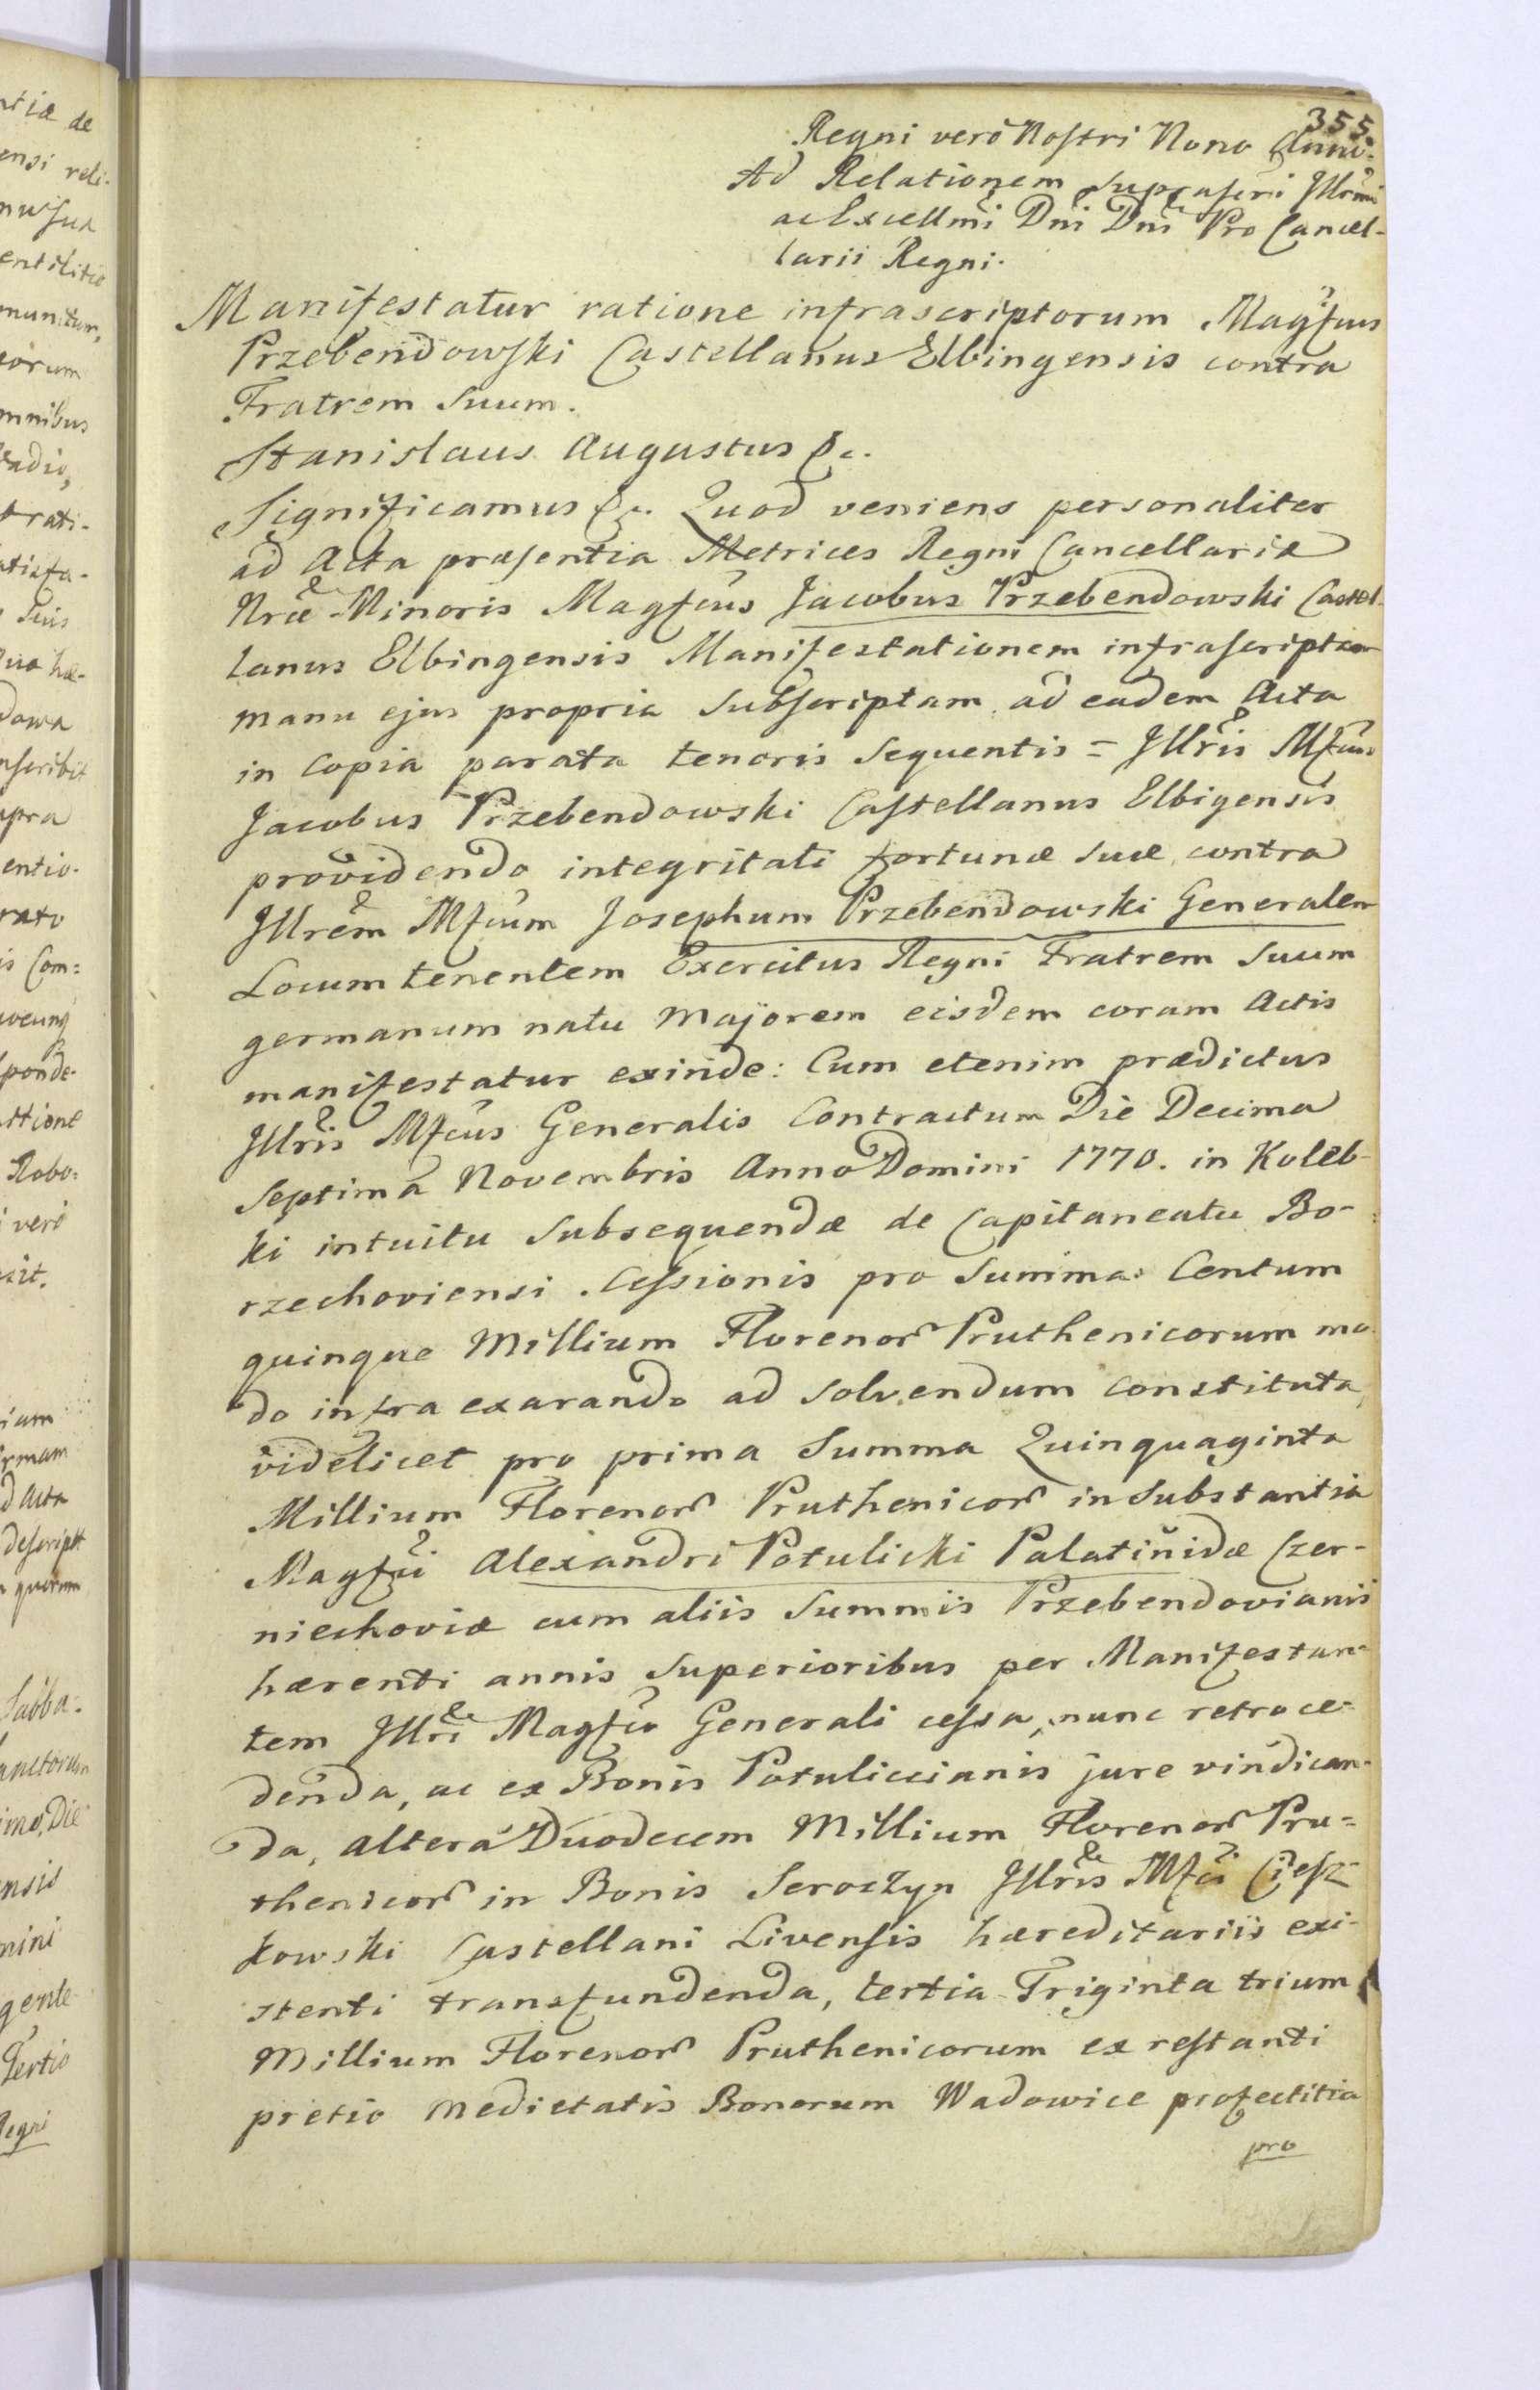 355.
Regni verò Nostri Nono Anno.
Ad Relationem suprascri Illrmi
ac Excellmi Dni Dni Pro Cancel-
larii Regni.
Manifestatur ratione infrascriptorum Magfcus
Przebendowski Castellanus Elbingensis contra
Fratrem Suum.
Stanislaus Augustus &c.
Significamus &c. Quod veniens personaliter
ad Acta præsentia Metrices Regni Cancellariæ
Nræ Minoris Magfcus Jacobus Przebendowski Castel-
lanus Elbingensis Manifestationem infrascriptam
manu ejus propria Subscriptam ad eadem Acta
in Copia parata tenoris Sequentis = Illris Mfcus
Jacobus Przebendowski Castellanus Elbigensis
providendo integritati fortunæ Suæ contra
Illrem Mfcum Josephum Przebendowski Generalem
Locum tenentem Exercitus Regni Fratrem Suum
germanum natu Majorem eisdem coram Actis
manifestatur exinde: Cum etenim prædictus
Illris Mfcus Generalis Contractum Die Decima
Septima Novembris Anno Domini 1770. in Koleb-
ki intuitu Subsequendæ de Capitaneatu Bo-
rzechoviensi Cessionis pro Summa Centum
quinque Millium Florenor Pruthenicorum mo
do infra exarando ad Solvendum Constituta,
videlicet pro prima Summa Quinquaginta
Millium Florenor Pruthenicor in Substantia
Magfci Alexandri Potulicki Palatinidæ Czer-
niechoviæ cum aliis Summis Przebendovianis
hærenti annis Superioribus per Manifestan-
tem Illri Magfco Generali cessa, nunc retroce-
denda, ac ex Bonis Potuliccianis jure vindican-
da, altera Duodecem Millium Florenor Pru=
thenicor in Bonis Seroczyn Illris Mfci Ciesz-
kowski Castellani Livensis hæreditariis exi-
stenti transfundenda, tertia Triginta trium
Millium Florenor Pruthenicorum ex restanti
pretio Medietatis Bonorum Wadowice profectitia
pro